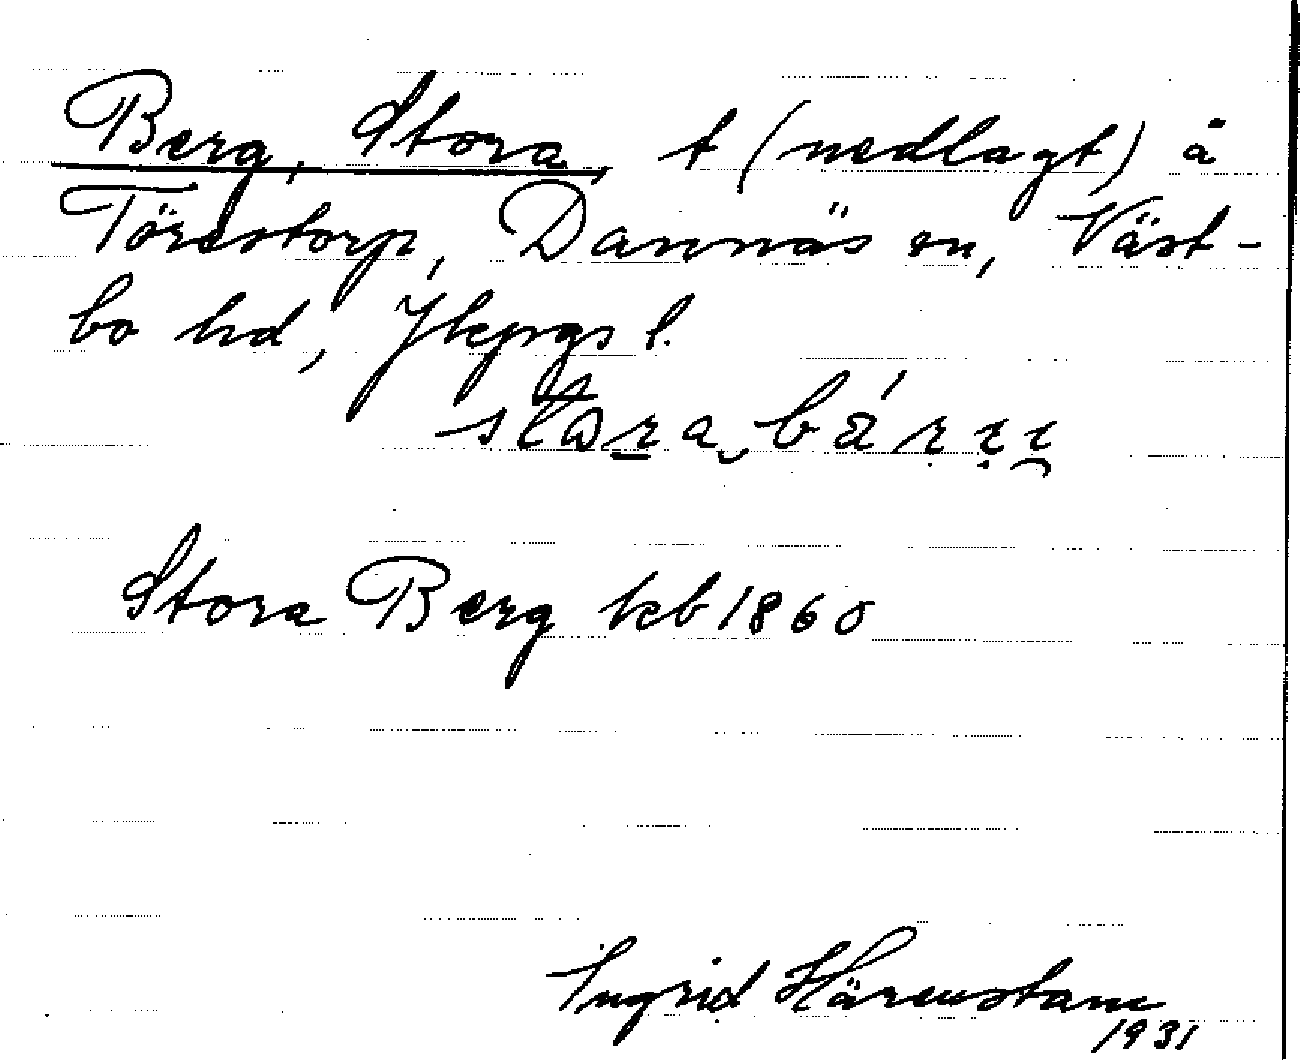 Berg, Stora, t (nedlagt) å
Törestorp, Dannäs sn, Väst-
bo hd, Jkpgs l.
Stora Berg kb 1860
Ingrid Härenstam
1931